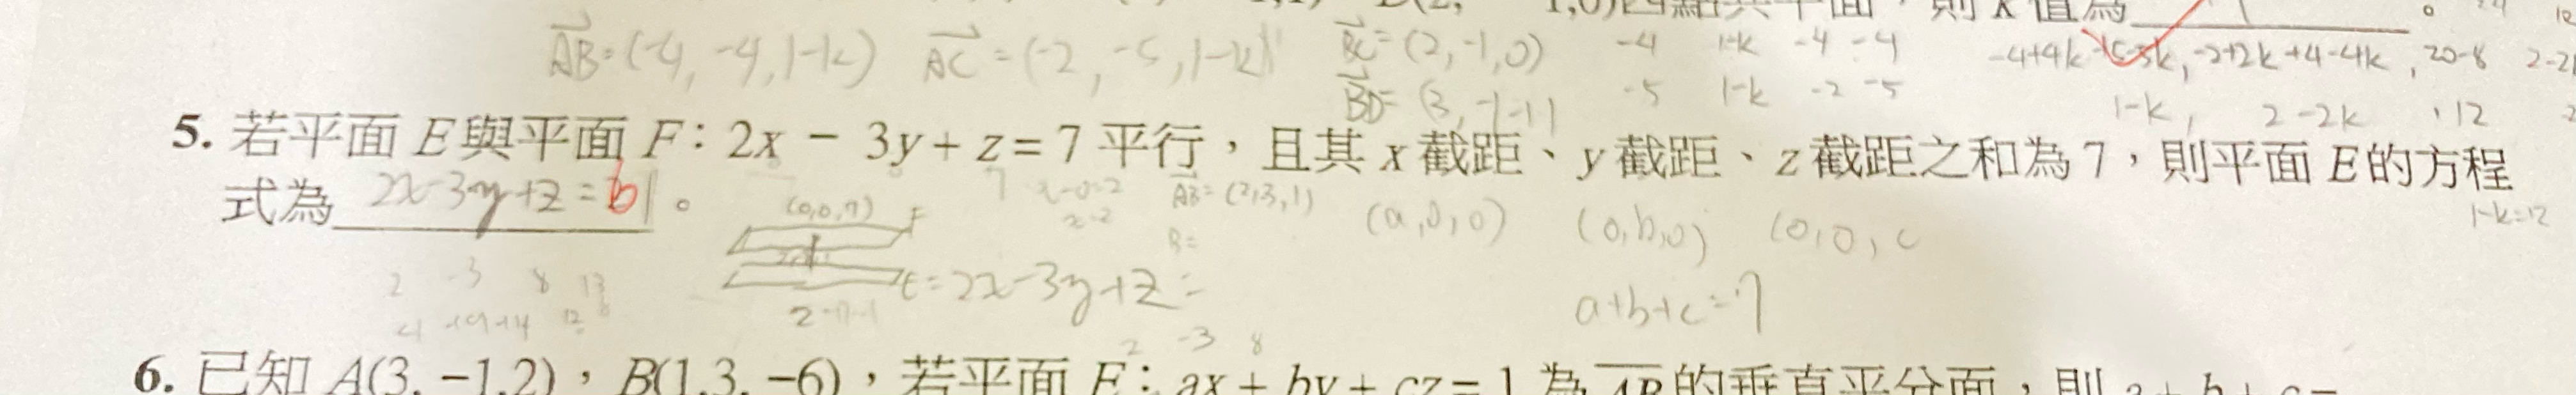 1,0)四點共平面，則 k 值為 。
AB=(-4,-4,1-k) AC=(-2,-5,1-k) BC=(2,-1,0) -4 1-k -4 -4
BD=(3,-1-1) -5 1-k -2 -5
1-k, 2-2k ,12
5. 若平面 E與平面 F：2x − 3y + z = 7 平行，且其 x 截距、y 截距、z 截距之和為 7，則平面 E的方程
式為 2x-3y+z=6 。
(0,0,7) F
x-0=2
x=2
AB=(2,-3,1)
(a,0,0) (0,b,0) (0,0,c
1-k=12
E=2x-3y+z=
2 -3 8 13
a+b+c=7
2 -3 8
6. 已知 A(3, −1,2)，B(1,3, −6)，若平面 E：ax + by + cz = 1 為 AB 的垂直平分面，則 a + b + c =